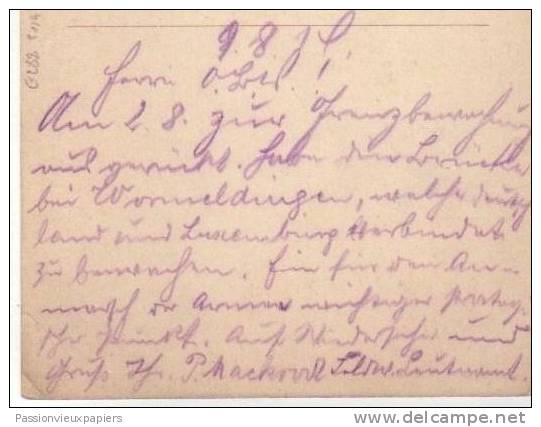 9.8.14.
Herrn O.Lt.!
Am 2.8. zur Grenzbewachung
ausgerückt. Habe die Brücke
bei Wormeldingen, welche Deutsch
land und Luxemburg verbindet
zu bewachen. Ein für den An-
marsch der Armee wichtiger strateg.
scher Punkt. Auf Wiedersehn und
Gruß Ihr P. Leutnant.
Passionvieuxpapiers
delcampe.net